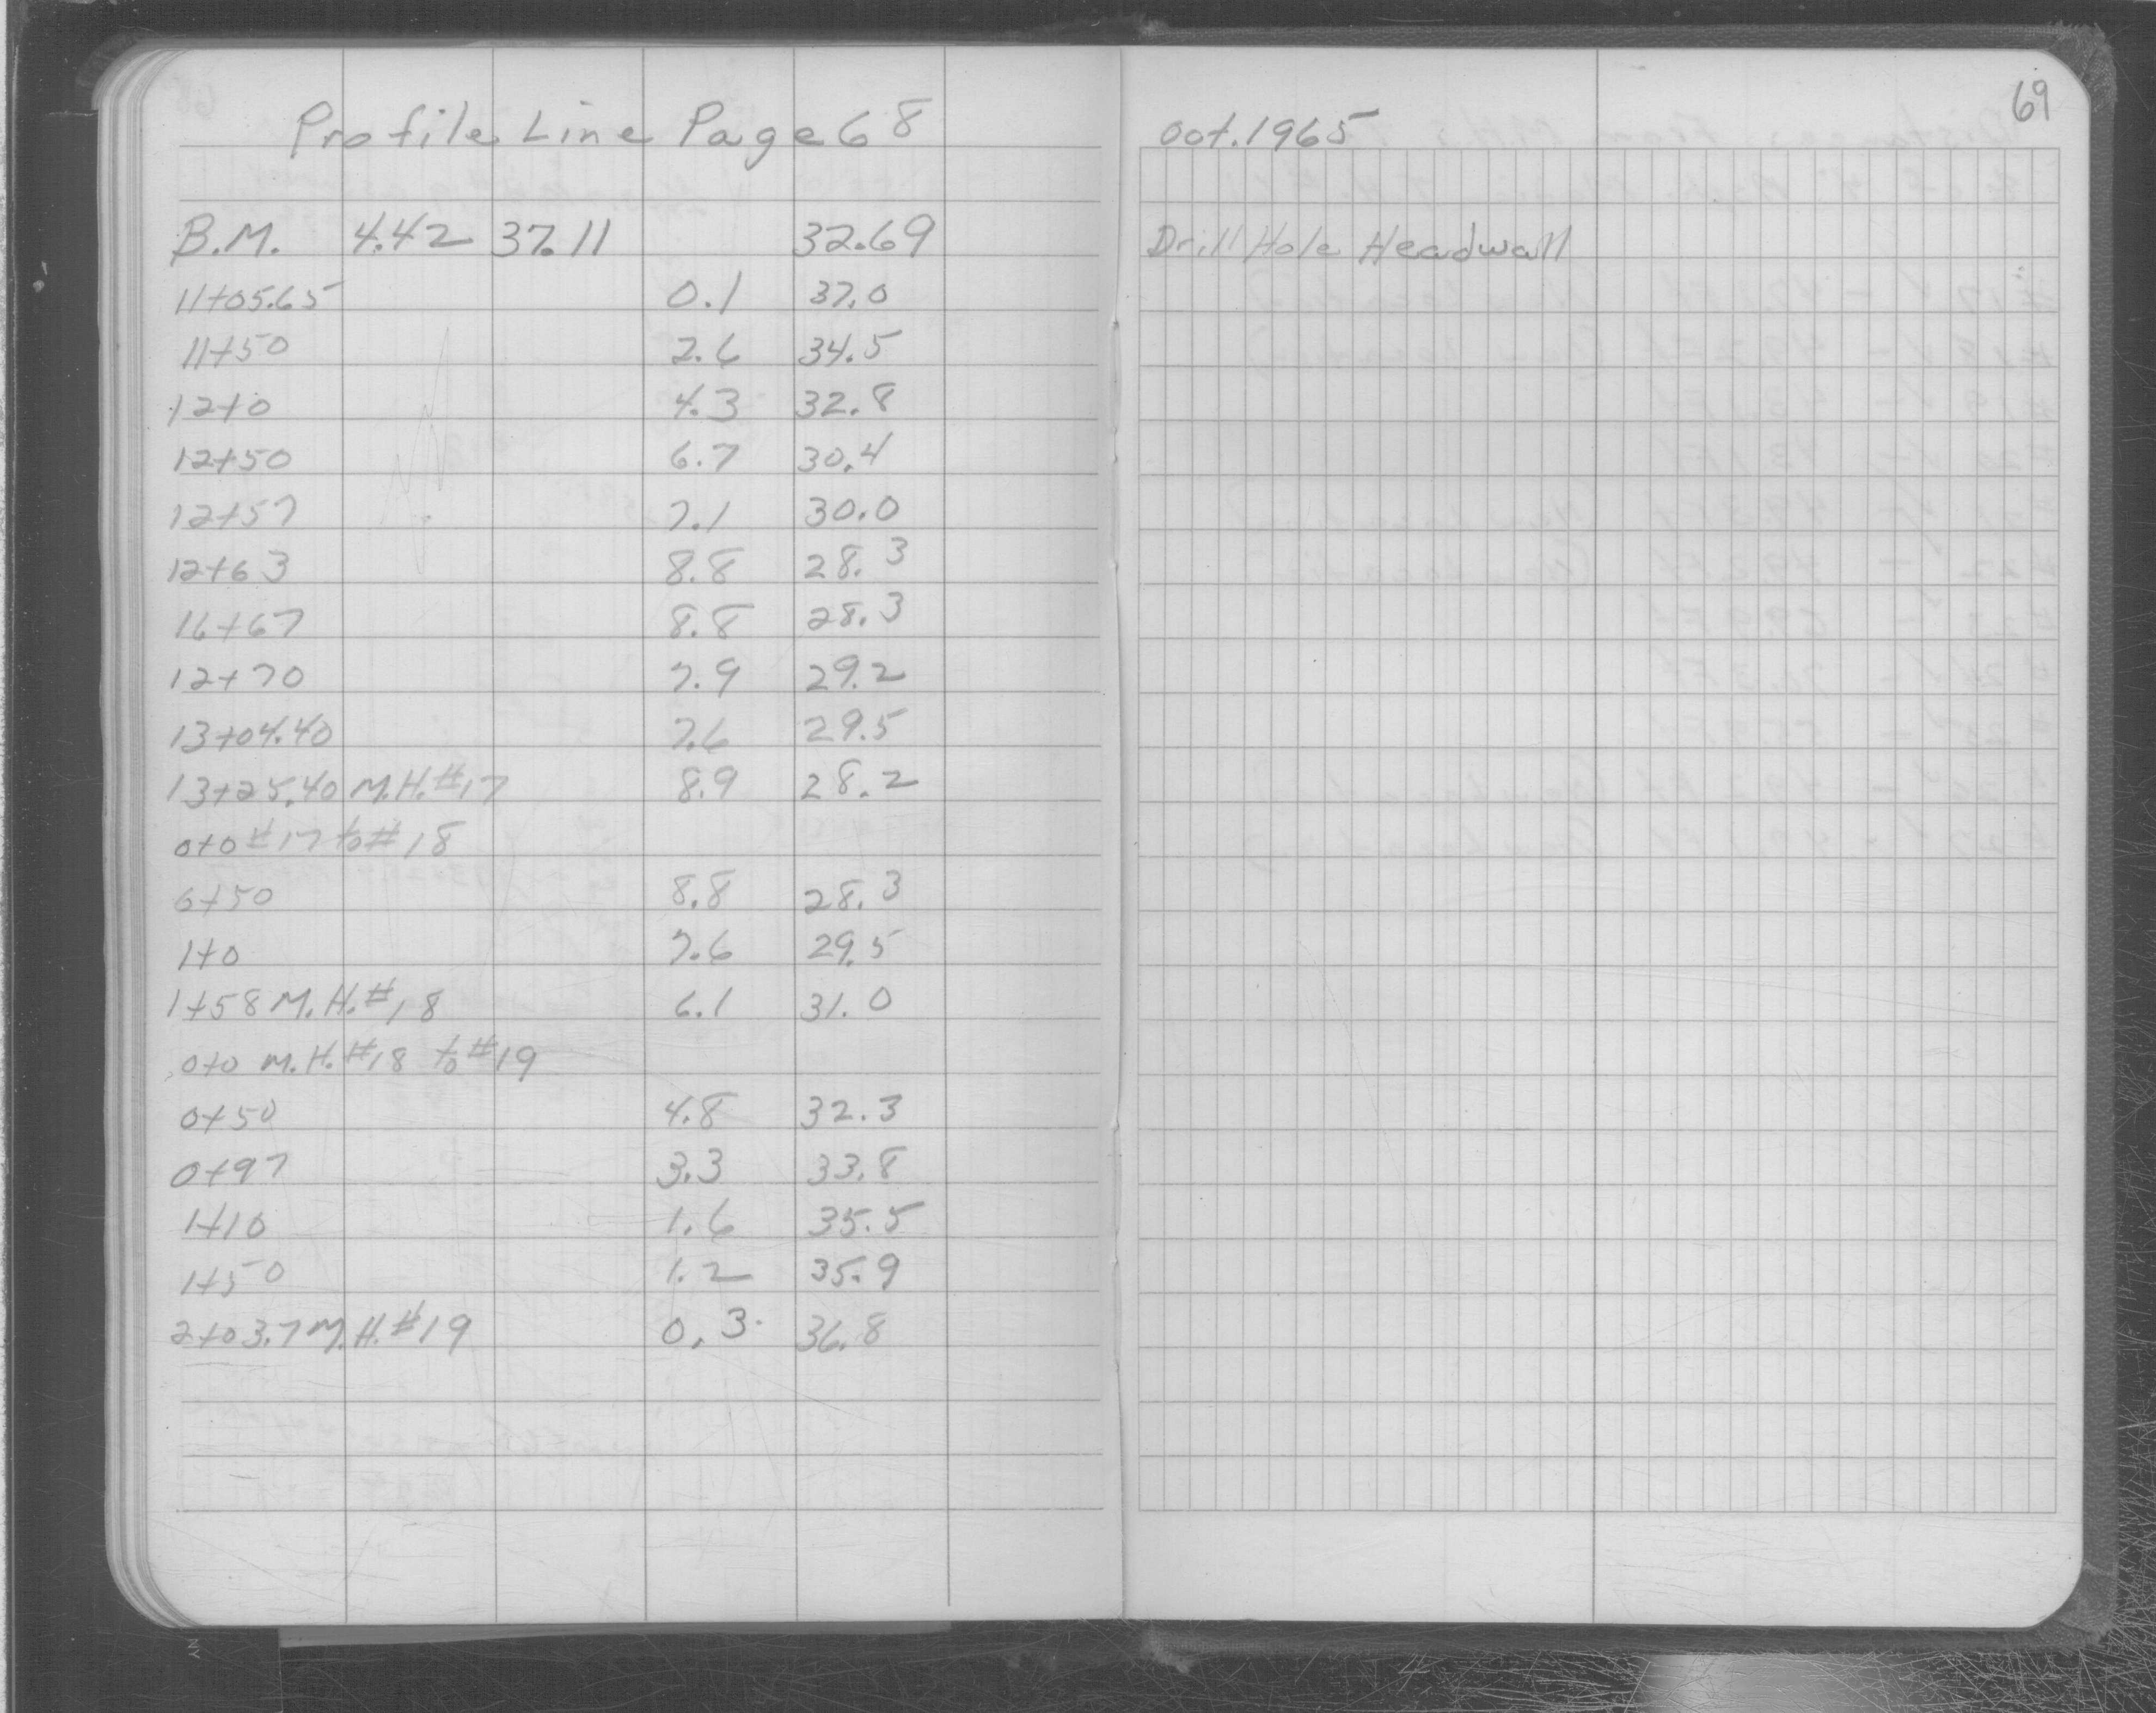 Profile Line Page 68
B.M. 4.42 37.11 32.69
11+05.65 0.1 37.0
11+50 2.6 34.5
12+0 4.3 32.8
12+50 6.7 30.4
12+57 7.1 30.0
12+63 8.8 28.3
16+67 8.8 28.3
12+70 7.9 29.2
13+04.40 7.6 29.5
13+25.40 M.H.#17 8.9 28.2
0+0 #17 to #18
6+50 8.8 28.3
1+0 7.6 29.5
1+58 M.H.#18 6.1 31.0
0+0 M.H.#18 to #19
0+50 4.8 32.3
0+97 3.3 33.8
1+10 1.6 35.5
1+50 1.2 35.9
2+03.7 M.H.#19 0.3 36.8
69
Oct. 1965
Drill Hole Headwall
NY